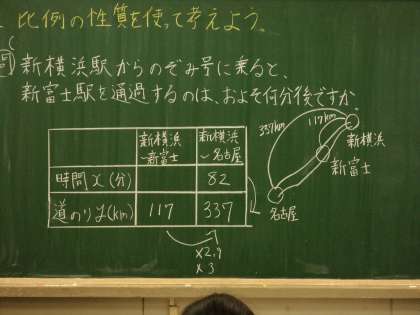 比例の性質を使って考えよう。
問 新横浜駅からのぞみ号に乗ると、
新富士駅を通過するのは、およそ何分後ですか。
新横浜〜新富士 新横浜〜名古屋
時間x(分) 82
道のりy(km) 117 337
×2.9
×3
337km
117km
新横浜
新富士
名古屋